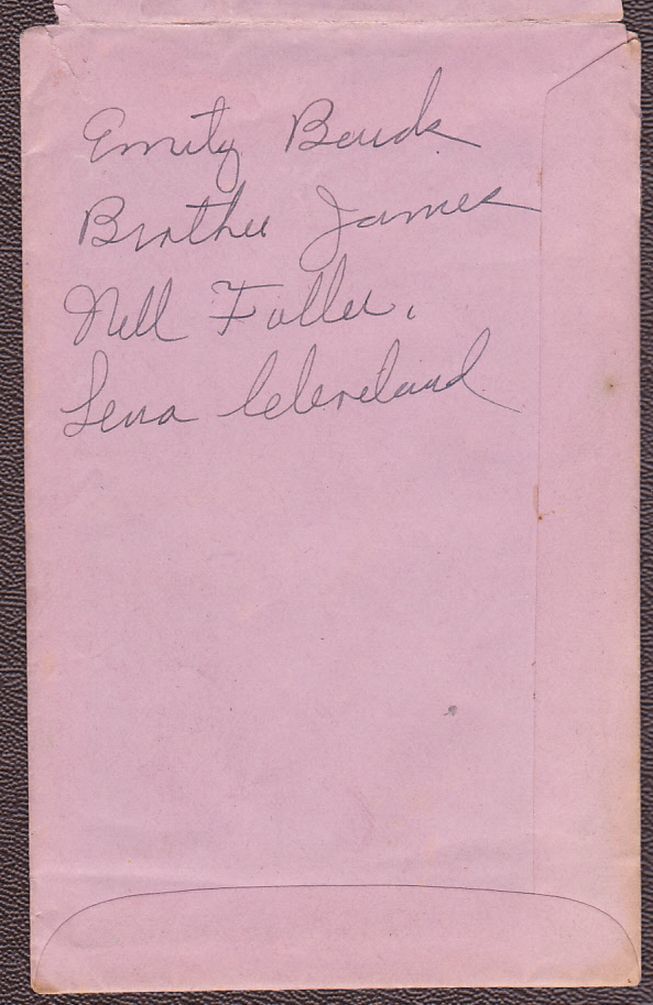 Emily Bouds
Brother James
Nell Fuller.
Lena Cleveland